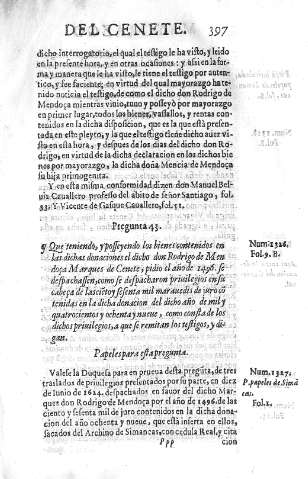 DEL CENETE. 397
dicho interrogatorio, el qual el testigo le ha visto, y leido
en la presente hora, y en otras ocasiones: y assi en la for
ma y manera que le ha visto, le tiene el testigo por auten
tico, y fee faciente, en virtud del qual mayorazgo ha te-
nido noticia el testigo, de como el dicho don Rodrigo de
Mendoça mientras viuio, tuuo y posseyò por mayorazgo
en primer lugar, todos los bienes, vassallos, y rentas con-
tenidas en la dicha disposicion, que es la que està presen-
tada en este pleyto, y la que el testigo tiene dicho auer vi-
sto en esta hora, y despues de los dias del dicho don Ro-
drigo, en virtud de la dicha declaracion en los dichos bie
nes por mayorazgo, la dicha doña Mencia de Mendoça
su hija primogenita.
Y en esta misma conformidad dizen don Manuel Bel-
uis Cauallero professo del abito de señor Santiago, fol.
83. Y Vicente de Gasque Cauallero, fol. 51.
Pregunta 43.
Que teniendo, y posseyendo los bienes contenidos en
las dichas donaciones el dicho don Rodrigo de Men
doça Marques de Cenete, pidio el año de 1496. se
despachassen, como se despacharon priuilegios en su
cabeça de las ciēto y sesenta mil marauedis de juro cō
tenidas en la dicha donacion del dicho año de mil y
quatrocientos y ochenta y nueue, como consta de los
dichos priuilegios, a que se remitan los testigos, y di-
gan.
Num. 1326.
Fol. 9. B.
Papeles para esta pregunta.
Valese la Duquesa para en prueua desta pregūta, de tres
traslados de priuilegios presentados por su parte, en diez
de Iunio de 1624. despachados en fauor del dicho Mar-
ques don Rodrigo de Mendoça por el año de 1496. de las
ciento y sesenta mil de juro contenidos en la dicha dona-
cion del año ochenta y nueue, que està inserta en ellos,
sacados del Archiuo de Simancas, con cedula Real, y cita
Num. 1327.
P. papeles de Simā
cas.
Fol. 1.
Ppp cion